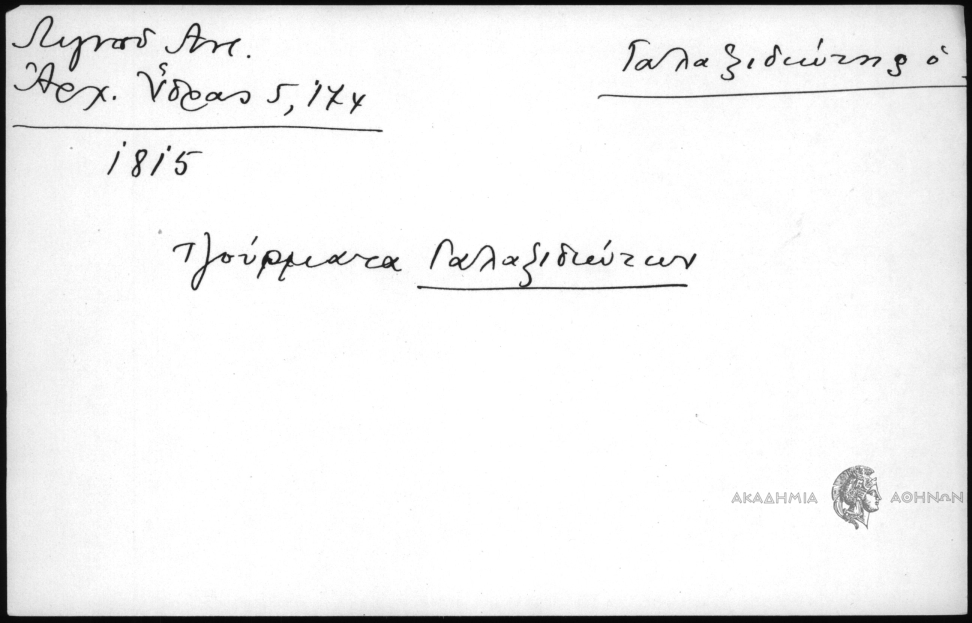 Λιγνοῦ Ἀντ.
Ἀρχ. Ὕδρας 5, 174
Γαλαξιδιώτης ὁ
1815
τζούρματα Γαλαξιδιώτων
ΑΚΑΔΗΜΙΑ ΑΘΗΝΩΝ